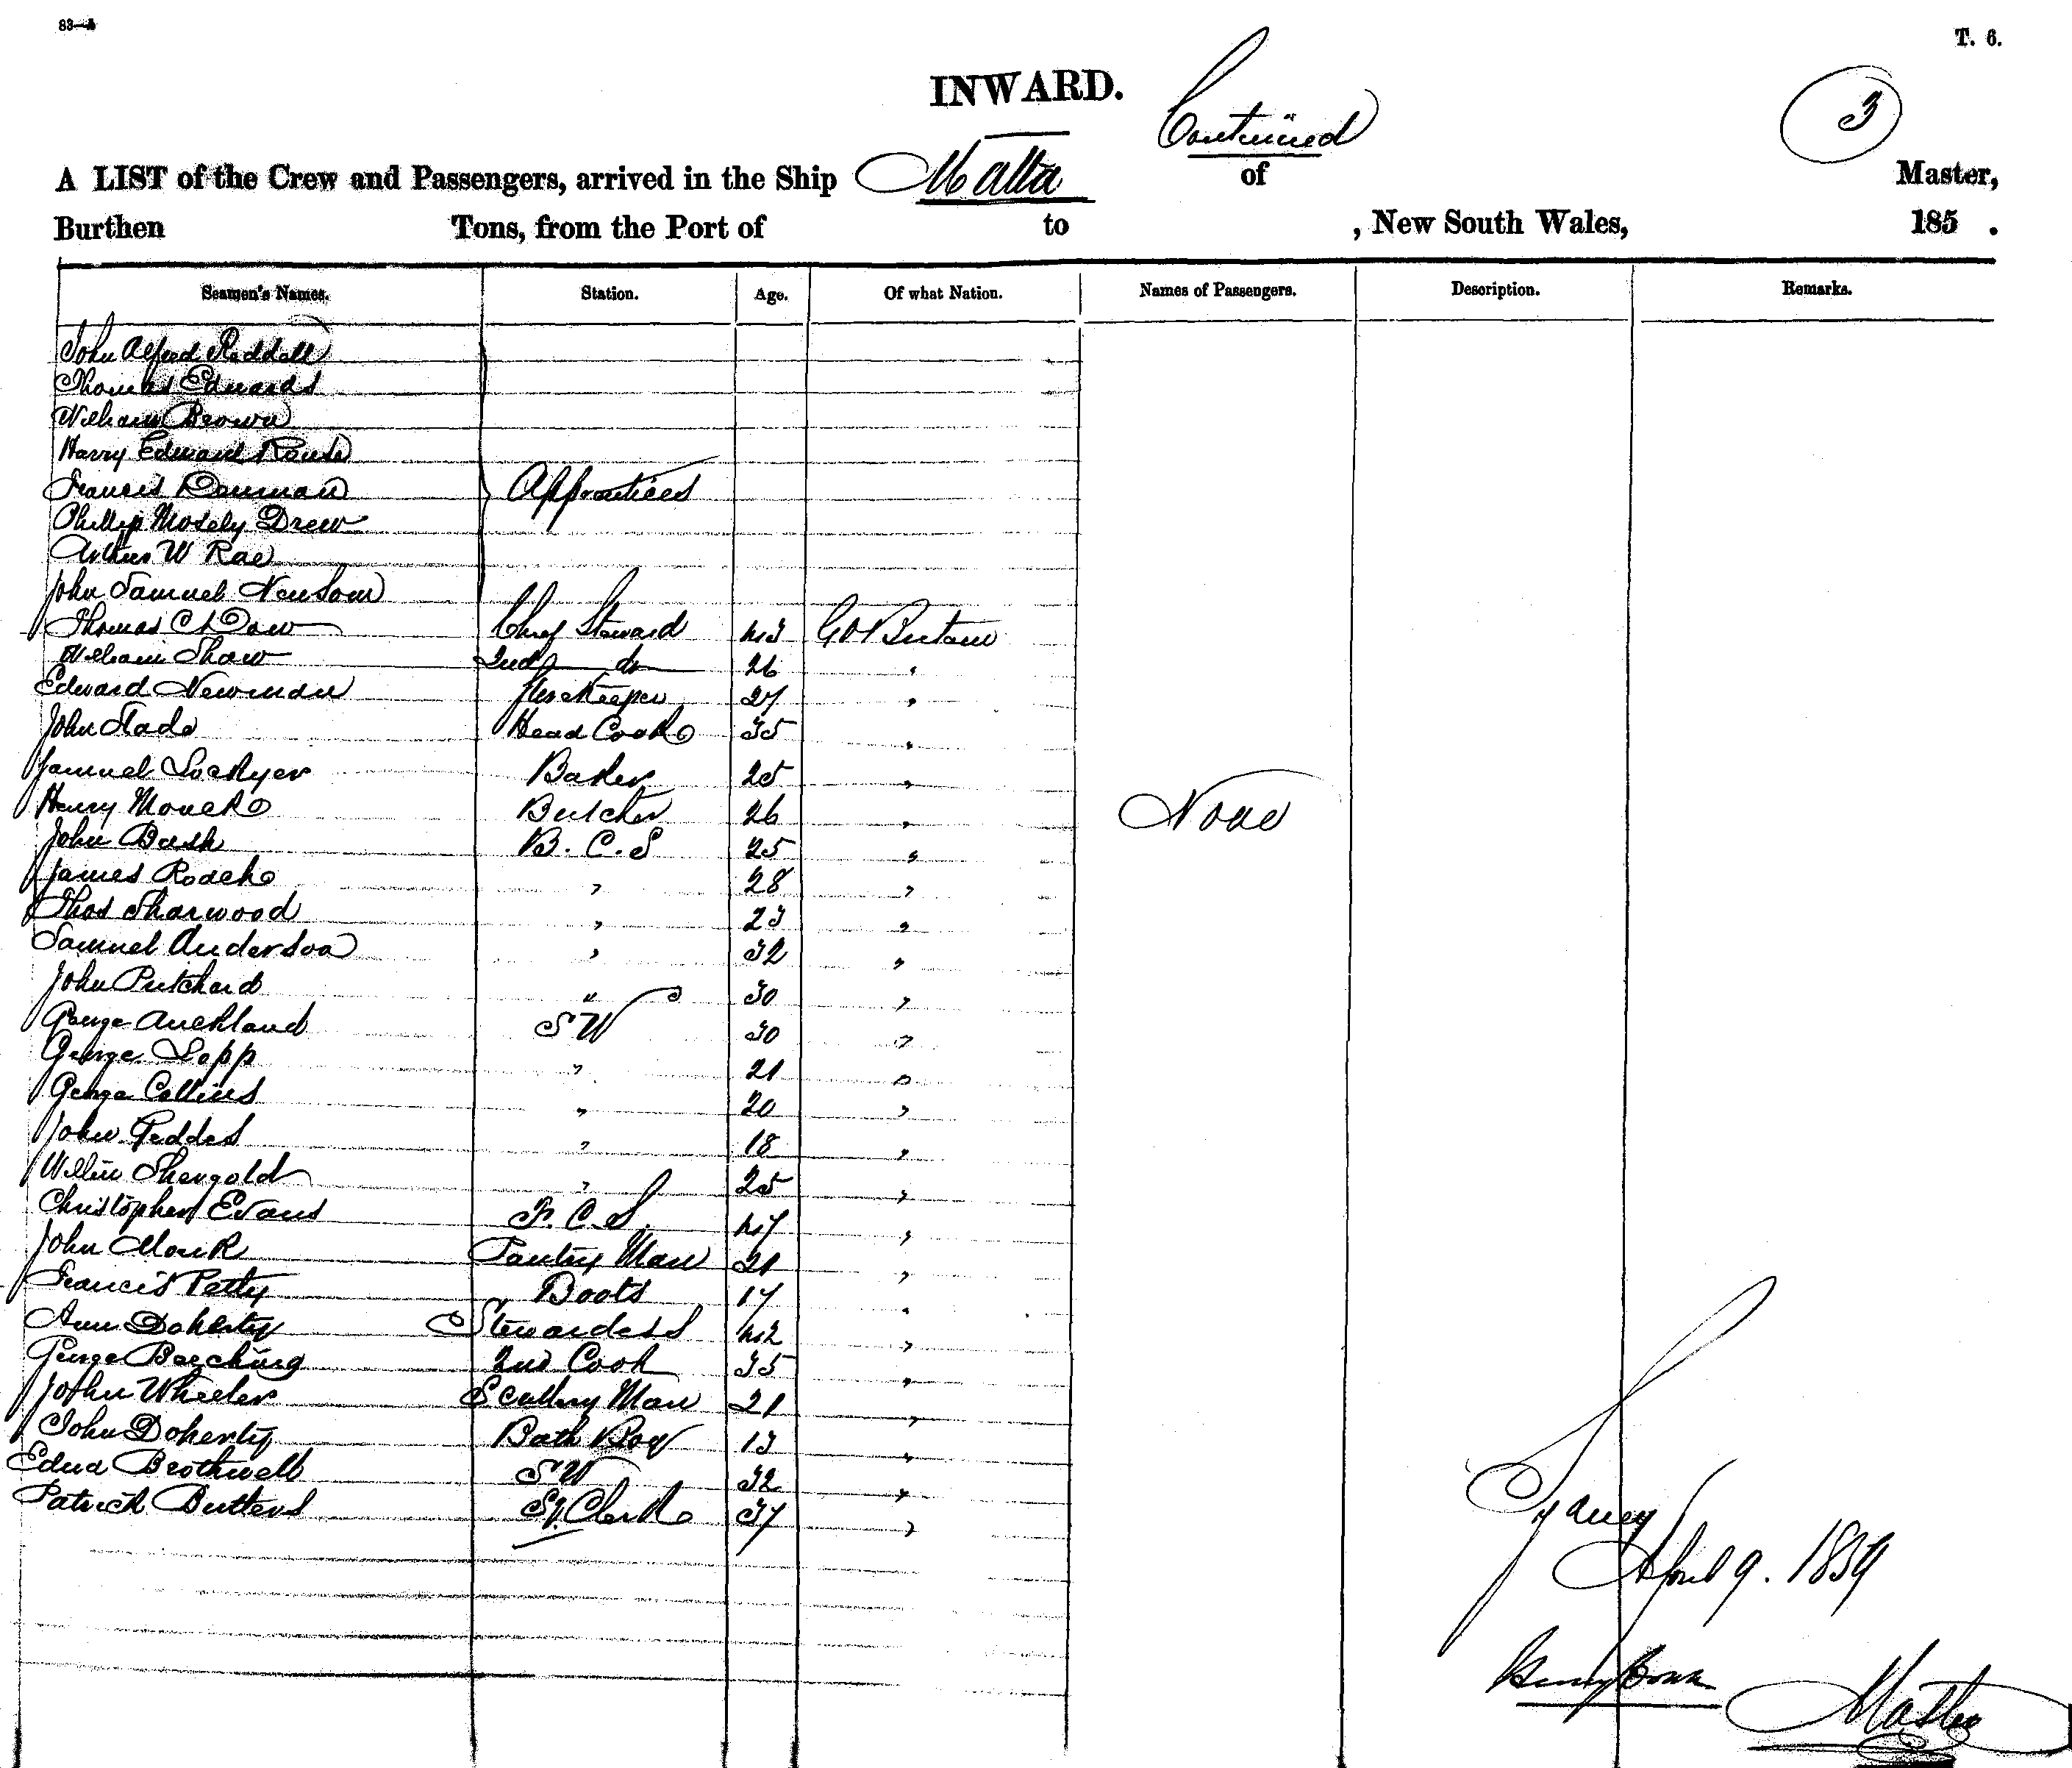 83—A
T. 6.
INWARD.
Continued
3
A LIST of the Crew and Passengers, arrived in the Ship Malta of Master,
Burthen Tons, from the Port of to , New South Wales, 185 .
Seamen's Names. Station. Age. Of what Nation. Names of Passengers. Description. Remarks.
John Alfred Reddall
Thomas Edwards
William Brown
Harry Edward Rouse
Francis Denman Apprentices
Phillip Mosely Drew
Arthur W Rae
John Samuel Newsom
Thomas C Dow Chief Steward 43 Gt Britain
William Shaw 2nd do 26 "
Edward Newman Storekeeper 27 "
John Slade Head Cook 35 "
Samuel Lockyer Baker 25 "
Henry Monck Butcher 26 " None
John Bash B. C. S 25 "
James Roach " 28 "
Thos Sharwood " 23 "
Samuel Anderson " 32 "
John Pritchard " 30 "
George Auckland S W 30 "
George Lapp " 21 "
George Collins " 20 "
John Geddes " 18 "
Willm Shergold " 25 "
Christopher Evans F. C. S. 47 "
John Monk Pantry Man 21 "
Francis Petty Boots 17 "
Ann Doherty Stewardess 42 "
George Beeching 2nd Cook 35 "
John Wheeler Scullery Man 21 "
John Doherty Bath Boy 13 "
Edwd Brothwell S W 32 "
Patrick Butters Clerk 37 "
Sydney
April 9. 1859
Henry
Master